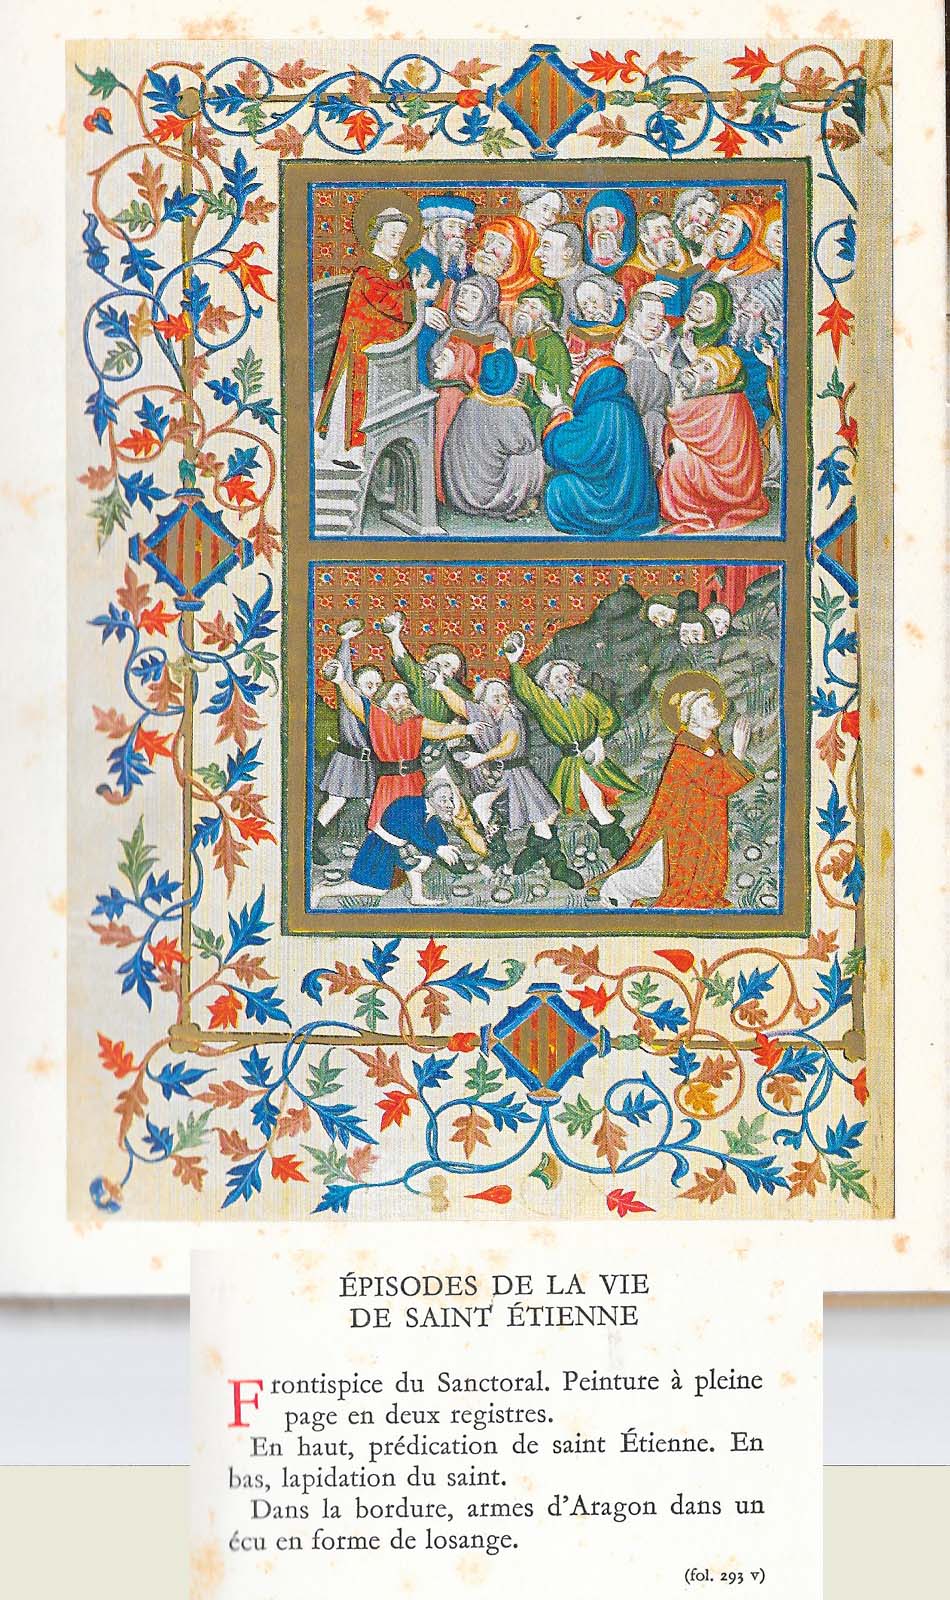 ÉPISODES DE LA VIE
DE SAINT ÉTIENNE
Frontispice du Sanctoral. Peinture à pleine
page en deux registres.
En haut, prédication de saint Étienne. En
bas, lapidation du saint.
Dans la bordure, armes d'Aragon dans un
écu en forme de losange.
(fol. 293 v)